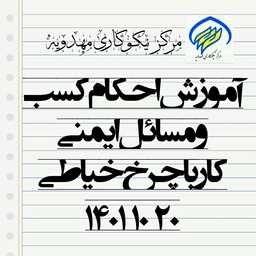 مرکز نیکوکاری مهدویه
آموزش احکام کسب
ومسائل ایمنی
کار با چرخ خیاطی
۱۴۰۱ ۱۰ ۲۰